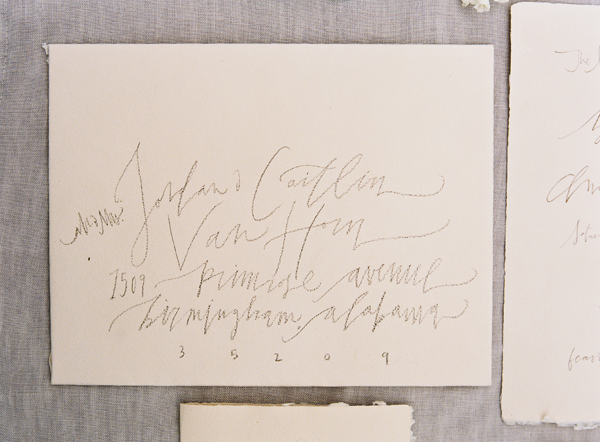 Mr&Mrs. Jordan & Caitlin
Van Horn
1509 primrose avenue
birmingham, alabama
3 5 2 0 9
The